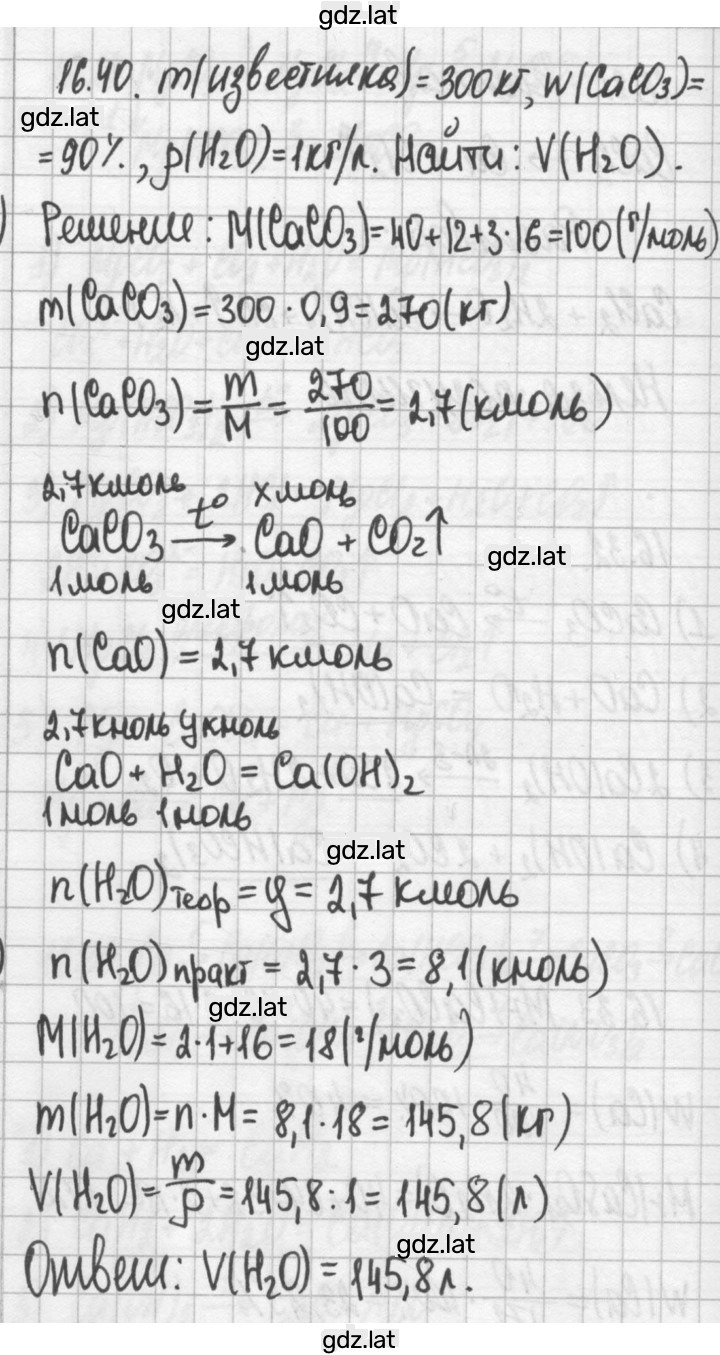 gdz.lat
16.40. m(известняка)=300кг, w(CaCO₃)=
gdz.lat
=90%., ρ(H₂O)=1кг/л. Найти: V(H₂O).
Решение: M(CaCO₃)=40+12+3·16=100(г/моль)
m(CaCO₃)=300·0,9=270(кг)
gdz.lat
n(CaCO₃)=m/M=270/100=2,7(кмоль)
2,7кмоль xмоль
CaCO₃ t°→ CaO + CO₂↑
gdz.lat
1моль 1моль
gdz.lat
n(CaO)=2,7 кмоль
2,7кмоль y кмоль
CaO+H₂O=Ca(OH)₂
1моль 1моль
gdz.lat
n(H₂O)теор=y=2,7 кмоль
n(H₂O)практ=2,7·3=8,1(кмоль)
gdz.lat
M(H₂O)=2·1+16=18(г/моль)
m(H₂O)=n·M=8,1·18=145,8(кг)
V(H₂O)=m/ρ=145,8:1=145,8(л)
gdz.lat
Ответ: V(H₂O)=145,8л.
gdz.lat